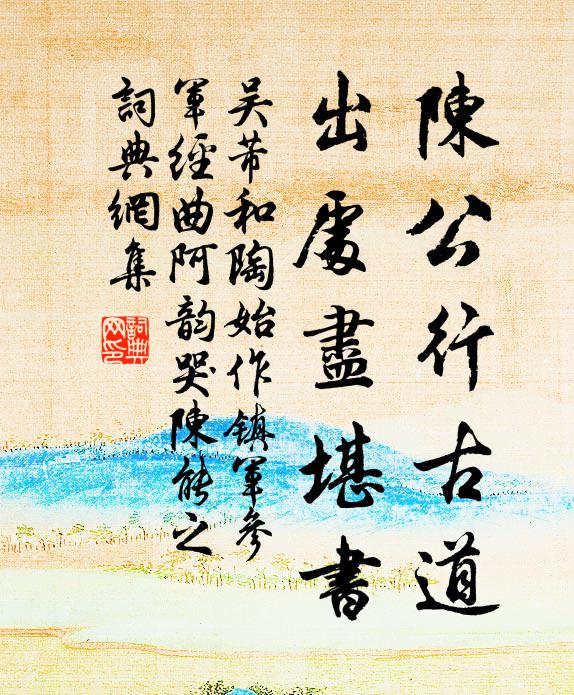 陳公行古道
出處盡堪書
吴芾和陶始作鎮軍參
軍經曲阿韵哭陳能之
詞典網集
詞典
网印